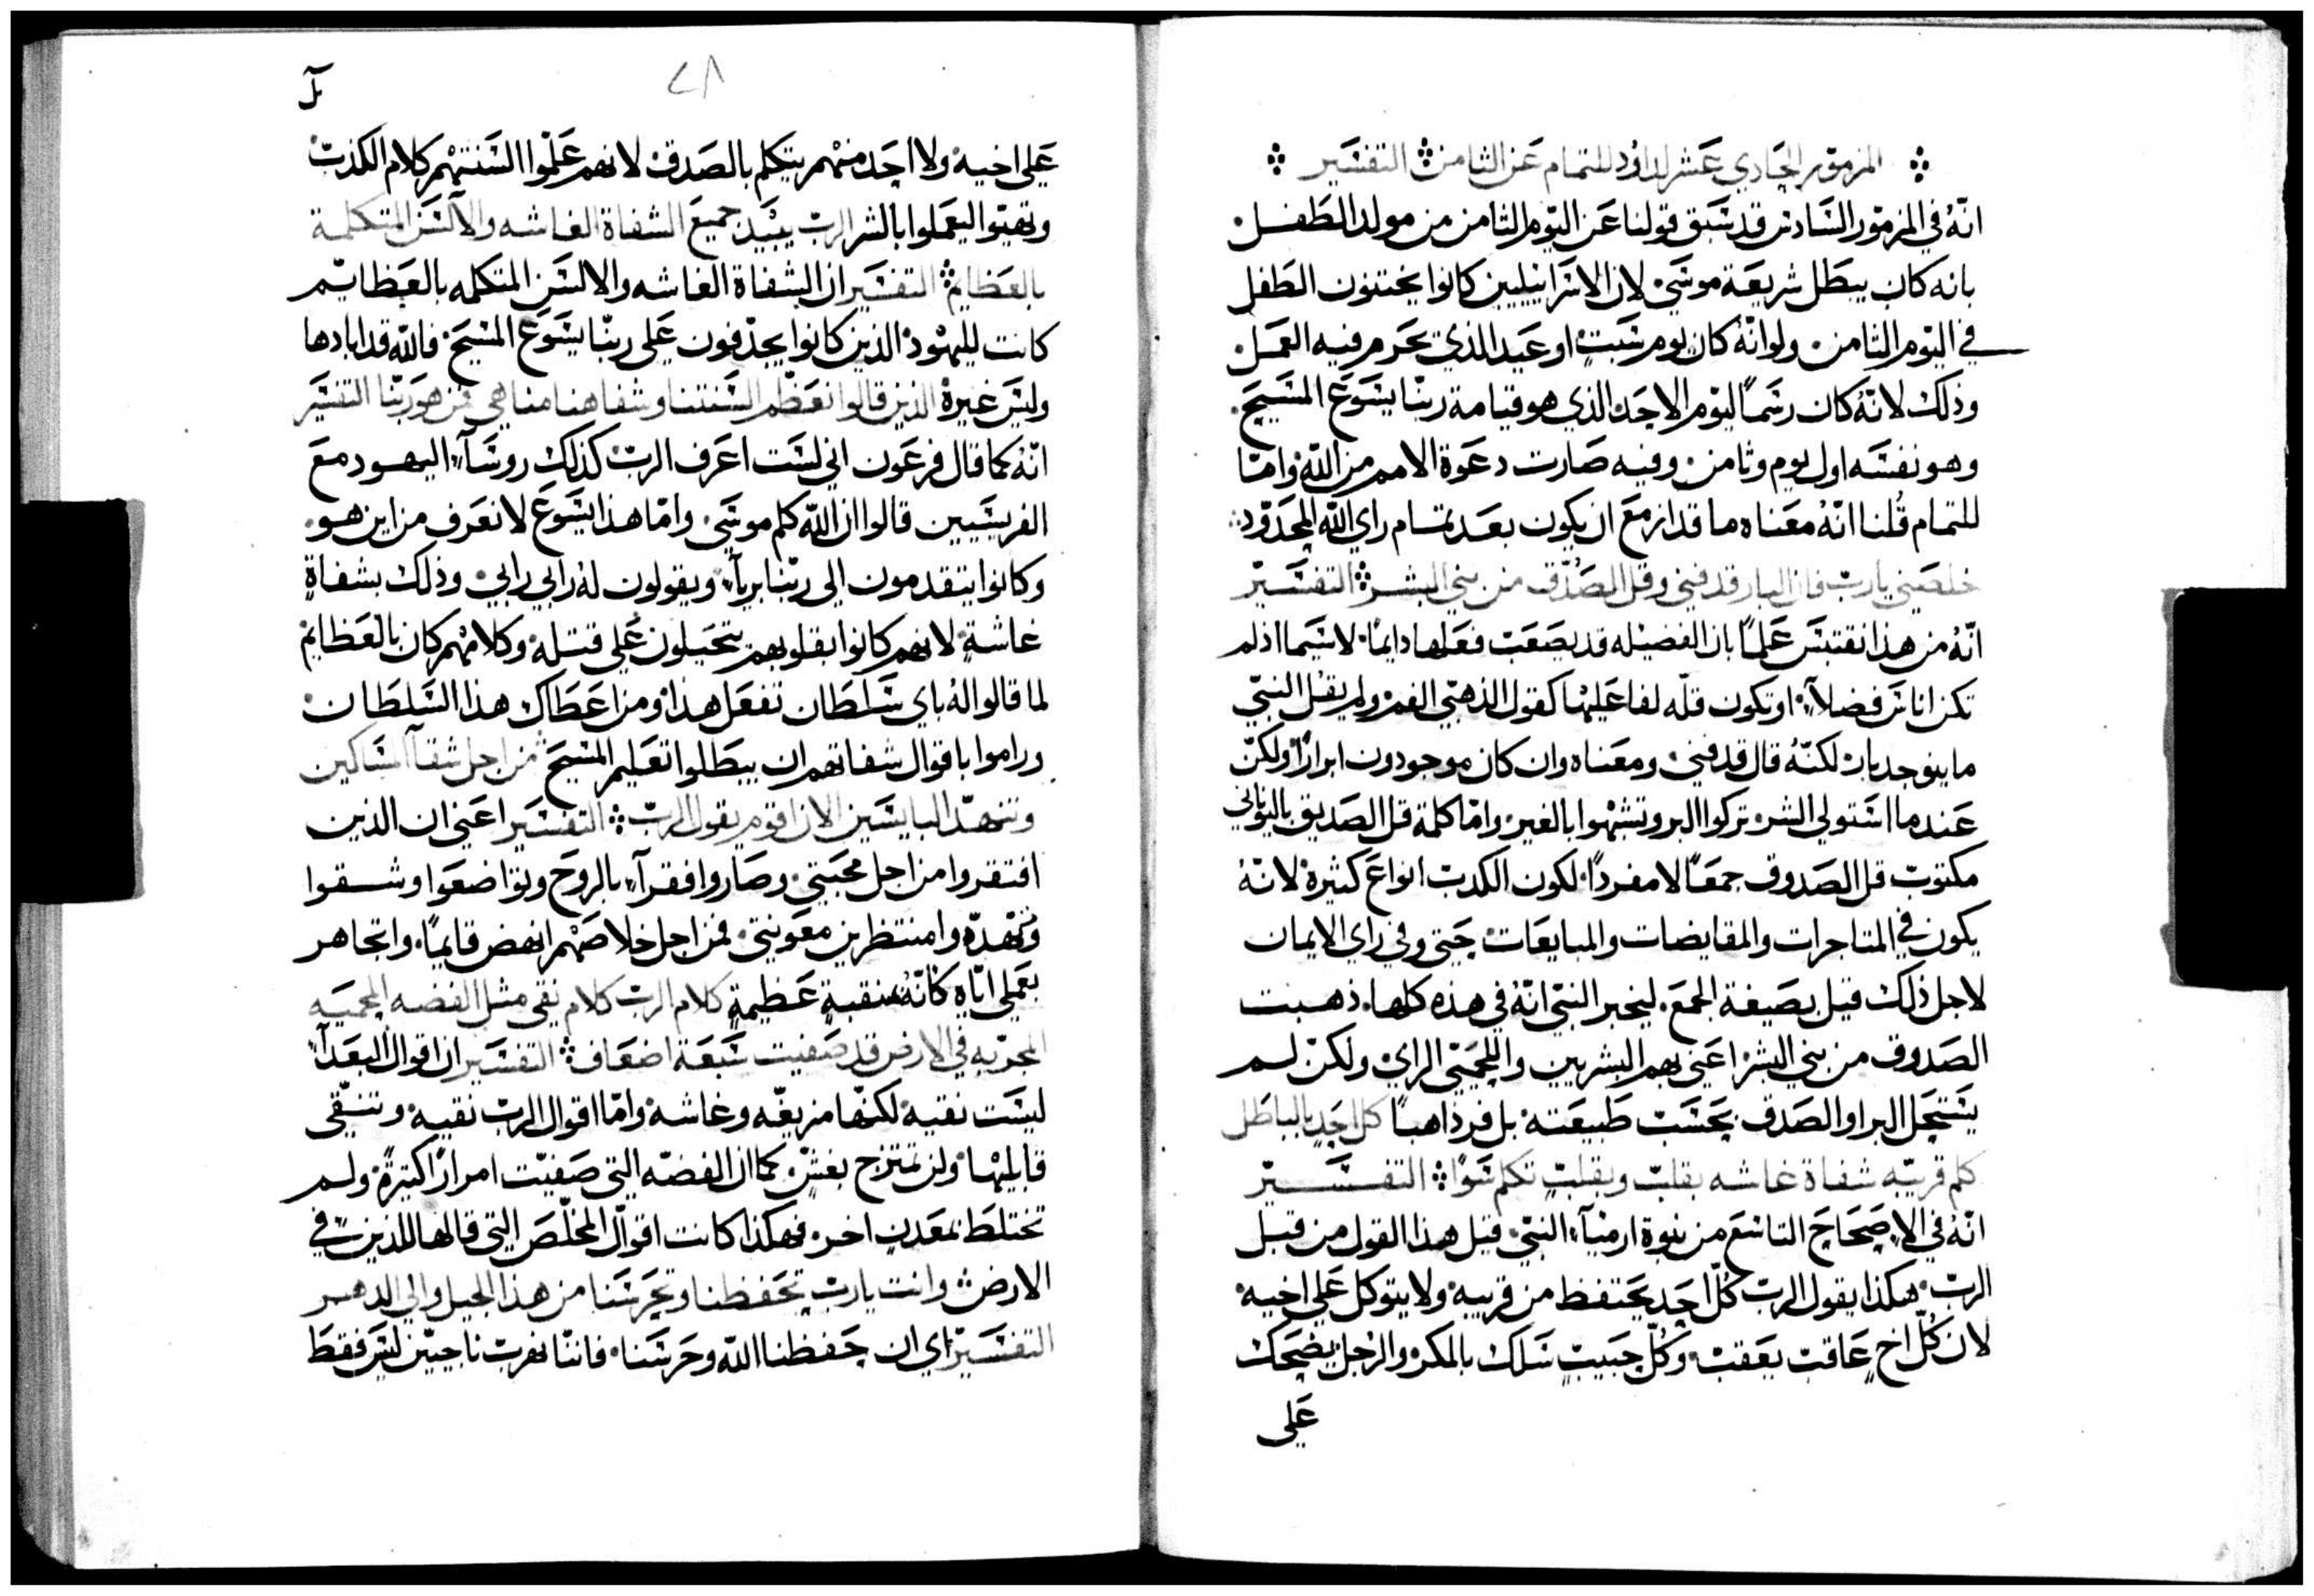 المزمور الحادي عشر لداود للتمام عن الثامن التفسير
انّهُ في المزمور السادس قد سَبق قولنا عَن اليوم الثامن من مولد الطفل
بانه كان يبطل شريعة موسَى لان الاسَراييليين كانوا يختنون الطفل
في اليوم الثامن ولو انّهُ كان يوم سَبتٍ او عَيد الذي تحرم فيه العمل
وذلك لانّهُ كان رسَماً ليوم الاحَد الذي هو قيامة ربّنا يسَوعَ المسَيحَ
وهو نفسَه اول يوم وثامن وفيه صَارت دعَوة الامم من اللّه وامّا
للتمام قُلنا انّهُ معَناه ما قد ازمعَ ان يكون بعَد تمام راي اللّه المحَدود
خلصَيني يارب فان البار قد فني وقل الصَدق من بني البشر التفسَير
انّهُ من هذا نقتبسَ عَلماً بان الفضيله قد يصَعَب فعَلها دايمًا لاسَيما اذ لم
تكن اناسَ فضلآء او تكون قلّه لفاعَليها كقول الذهبي الفم ولم يقل النبيّ
ما يوجد بار لكنّهُ قال قد فني ومعَناه وان كان موجودون ابرارًا ولكنّ
عَندما اسَتولي الشر تركوا البر وتشبهوا بالغير وامّا كلمة قل الصَديق باليوناني
مكتوب قل الصَدوق جمعَاً لا مفردًا لكون الكدب انواعَ كثيرة لانّهُ
يكون في المتاجرات والمقايضات والمبايعَات حَتي وفي راي الايمان
لاجل ذلك قيل بصَيغة الجمعَ ليخبر النبيّ انّهُ في هذه كلها ذهبت
الصَدوق من بني البشر اعَني بهم البشريين واللحميّ الراي ولكنّ لم
يسَتحَل البر او الصَدق بحسَب طبيعَته بل فر ذاهباً كل احَدٍ بالباطل
كلم قريبّه شفاة غاشه بقلبٍ وبقلبٍ تكلم سَوًا التفسَير
انّهُ في الاصحَاحَ التاسَع من نبوة ارميآء النبيّ قيل هذا القول من قبل
الرب هكذا يقول الرب كُلّ احَد يحَتفظ من قريبه ولا يتوكل عَلي اخيه
لان كُلّ اخٍ عَاقب يعَقب وكُلّ حَبيبٍ سَلك بالمكر والرجل يضحَك
عَلي
عَلي اخيه ولا احَد منهم يتكلم بالصَدق لانهم عَلّموا السَنتهم كلام الكذب
وتهيّوا ليعَملوا بالشر الرب يبيَد جميعَ الشفاة الغاشه والالسَن المتكلمة
بالعَظايم التفسَير ان الشفاة الغاشه والالسَن المتكلمه بالعَظايم
كانت لليهود الذين كانوا يجدّفون عَلي ربّنا يسَوعَ المسَيحَ فاللّه قد ابادها
وليسَ غيرهُ الذين قالوا نعَظّم السَنتنا وشفاهنا منا هي فمن هو ربّنا التفسَير
انّهُ كما قال فرعَون اني لسَت اعَرف الرب كذلك روسَآء اليهود معَ
الفريسَيين قالوا ان اللّه كلم موسَي وامّا هذا يسَوعَ لا نعَرف من اين هو
وكانوا يتقدمون الي ربّنا برياً ويقولون لهُ رابي رابي وذلك بشفاةٍ
غاشةٍ لانهم كانوا بقلوبهم يتحَيلون عَلي قتله وكلامهم كان بالعَظايم
لما قالوا لهُ باي سَلطان تفعَل هذا ومن اعَطاك هذا السَلطان
وراموا باقوال شفاتهم ان يبطلوا تعَليم المسَيحَ من اجل شقآ المسَاكين
وتنهدّ البايسَين الان اقوم يقول الرب التفسَير اعَني ان الذين
افتقروا من اجل محَبتي وصَاروا فقرآء بالروحَ وتواضعَوا وشقوا
وتنهّدوا منتظرين معَونيتي فمن اجل خلاصَهم انهض قايمًا واتجاهر
بعَملي ايّاه كانّهُ منقبةٍ عَظيمةٍ كلام الرب كلام نقي مثل الفضه المحميَه
المجرّبه في الارض قد صَفيت سَبعَة اضعَاف التفسَير ان اقوال البعَدآء
ليسَت نقيه لكنها مزيغّه وغاشه وامّا اقوال الرب نقيه وتنقّي
قابليها ولن تمتزج بغشٍ كما ان الفضّه التي صَفيّت امرارًا كثيرةً ولم
تختلط بمعَدنٍ اخر فهكذا كانت اقوال المخلّصَ التي قالها للذين في
الارض وانت يارب تحَفظنا وتحَرسَنا من هذا الجيل والي الدهر
التفسَير اي ان حَفظنا اللّه وحَرسَنا فاننّا نهرب ناجيّين ليسَ فقط